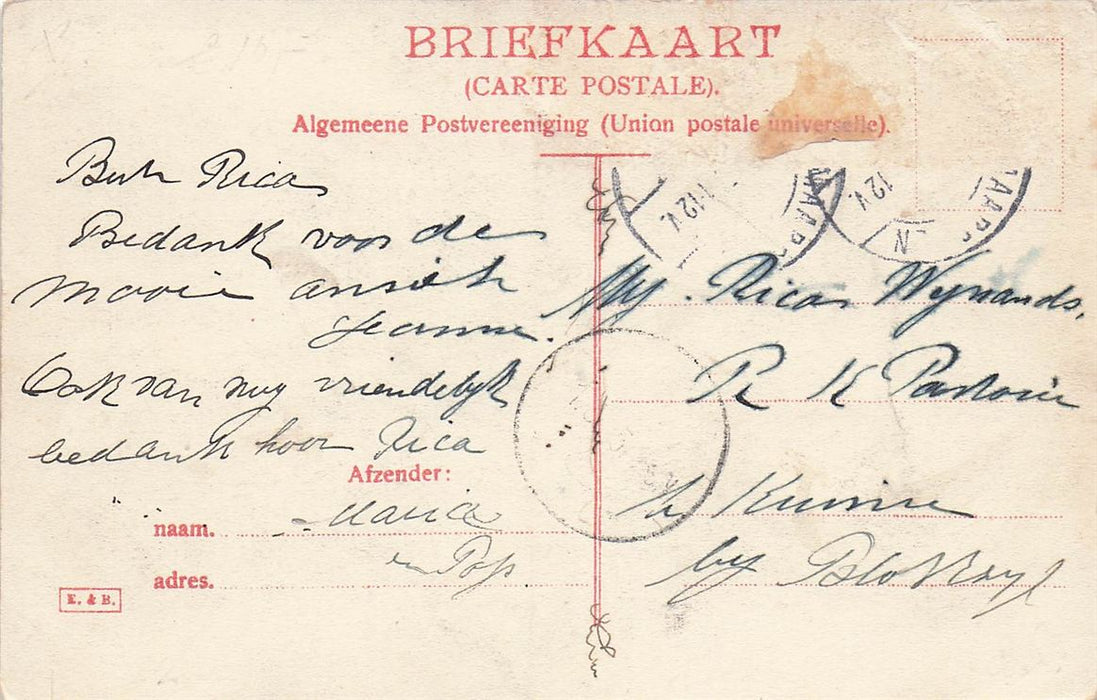 BRIEFKAART
(CARTE POSTALE).
Algemeene Postvereeniging (Union postale universelle).
Rica
Bedank voor de
mooie ansich
Jeanne.
Ook van mij vriendelijk
bedank hoor Rica
Afzender:
naam. Maria
en Pop
adres.
E. & B.
12 V.
12 V.
N
Mej. Rica Wijnands.
R K Pastorie
te Kuinre
bij Blokzyl